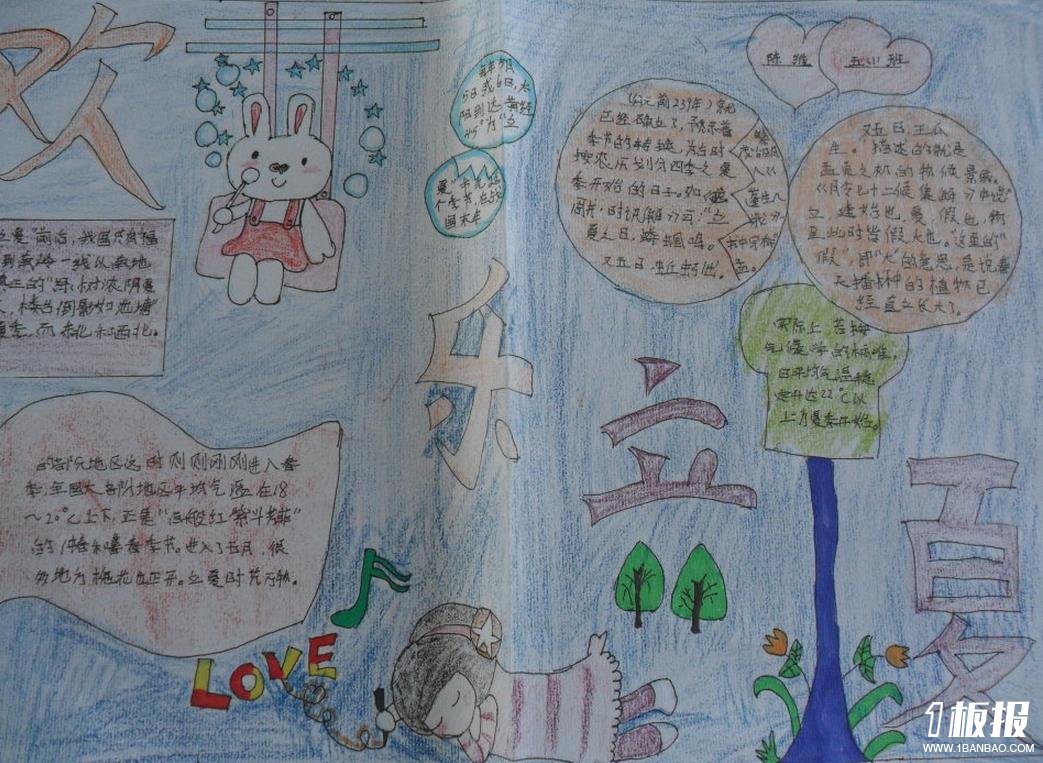 欢
乐
立
夏
陈维
五(1)班
每年5月
5日或6日,太
阳到达黄经
45°为"立
夏"节气
个季节,在战
国末年
(公元前239年)就
已经确立了,预示着
季节的转换,为古时
按农历划分四季之夏
季开始的日子。如
周书·时训解》云:"立
夏之日,蝼蝈鸣。
又五日,蚯蚓出。
又五日,王瓜
生。"描述的就是
孟夏之初的物候景象。
《月令七十二候集解》中说
立,建始也,夏,假也,物
至此时皆假大也。"这里的"
假",即"大"的意思,是说春
天播种的植物已
经直立长大了。
实际上 若按
气候学的标准,
日平均气温稳
定升达22℃以
上为夏季开始。
立夏"前后,我国只有福
到南岭一线以南地
真正的"绿树浓阴夏
,楼台倒影如池塘"
夏季,而东北和西北
的部分地区这时则刚刚进入春
季,全国大部分地区平均气温在18
~20℃上下,正是"百般红紫斗芳菲"
的仲春和暮春季节。进入了五月,很
多地方槐花也正开。立夏时节万物
LOVE
1板报
WWW.1BANBAO.COM